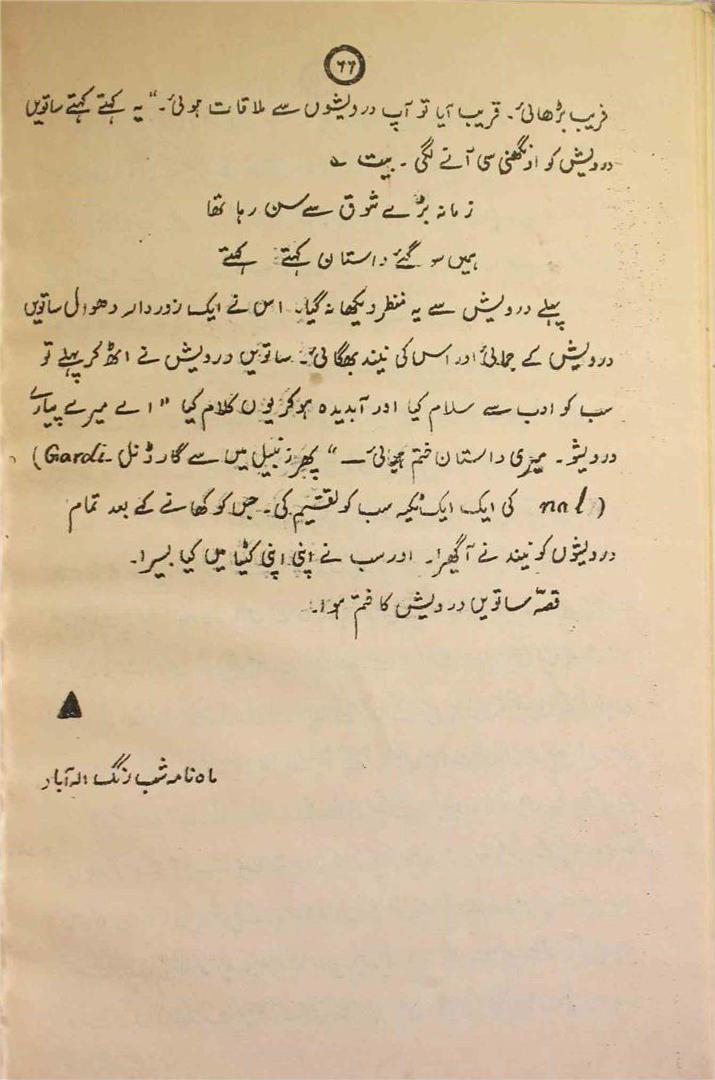 ۶۶
قریب بڑھائی۔ قریب آیا تو آپ درویشوں سے ملاقات ہوئی۔" یہ کہتے کہتے ساتویں
درویش کو اونگھنی سی آنے لگی۔ بیت ؎
زمانہ بڑے شوق سے سن رہا تھا
ہمیں سو گئے داستان کہتے کہتے
پہلے درویش سے یہ منظر دیکھا نہ گیا۔ اس نے ایک زوردار دھول ساتویں
درویش کے جمائی اور اس کی نیند بھگائی۔ ساتویں درویش نے اٹھ کر پہلے تو
سب کو ادب سے سلام کیا اور آبدیدہ ہوکر یوں کلام کیا "اے میرے پیارے
درویشو۔ میری داستان ختم ہوئی۔" پھر زنبیل میں سے گارڈنل (Gardi-
nal) کی ایک ایک ٹکیہ سب کو تقسیم کی۔ جس کو کھانے کے بعد تمام
درویشوں کو نیند نے آگھیرا۔ اور سب نے اپنی اپنی کٹیا میں کیا بسیرا۔
قصّہ ساتویں درویش کا ختم ہوا۔
ماہ نامہ شب رنگ الہ آباد